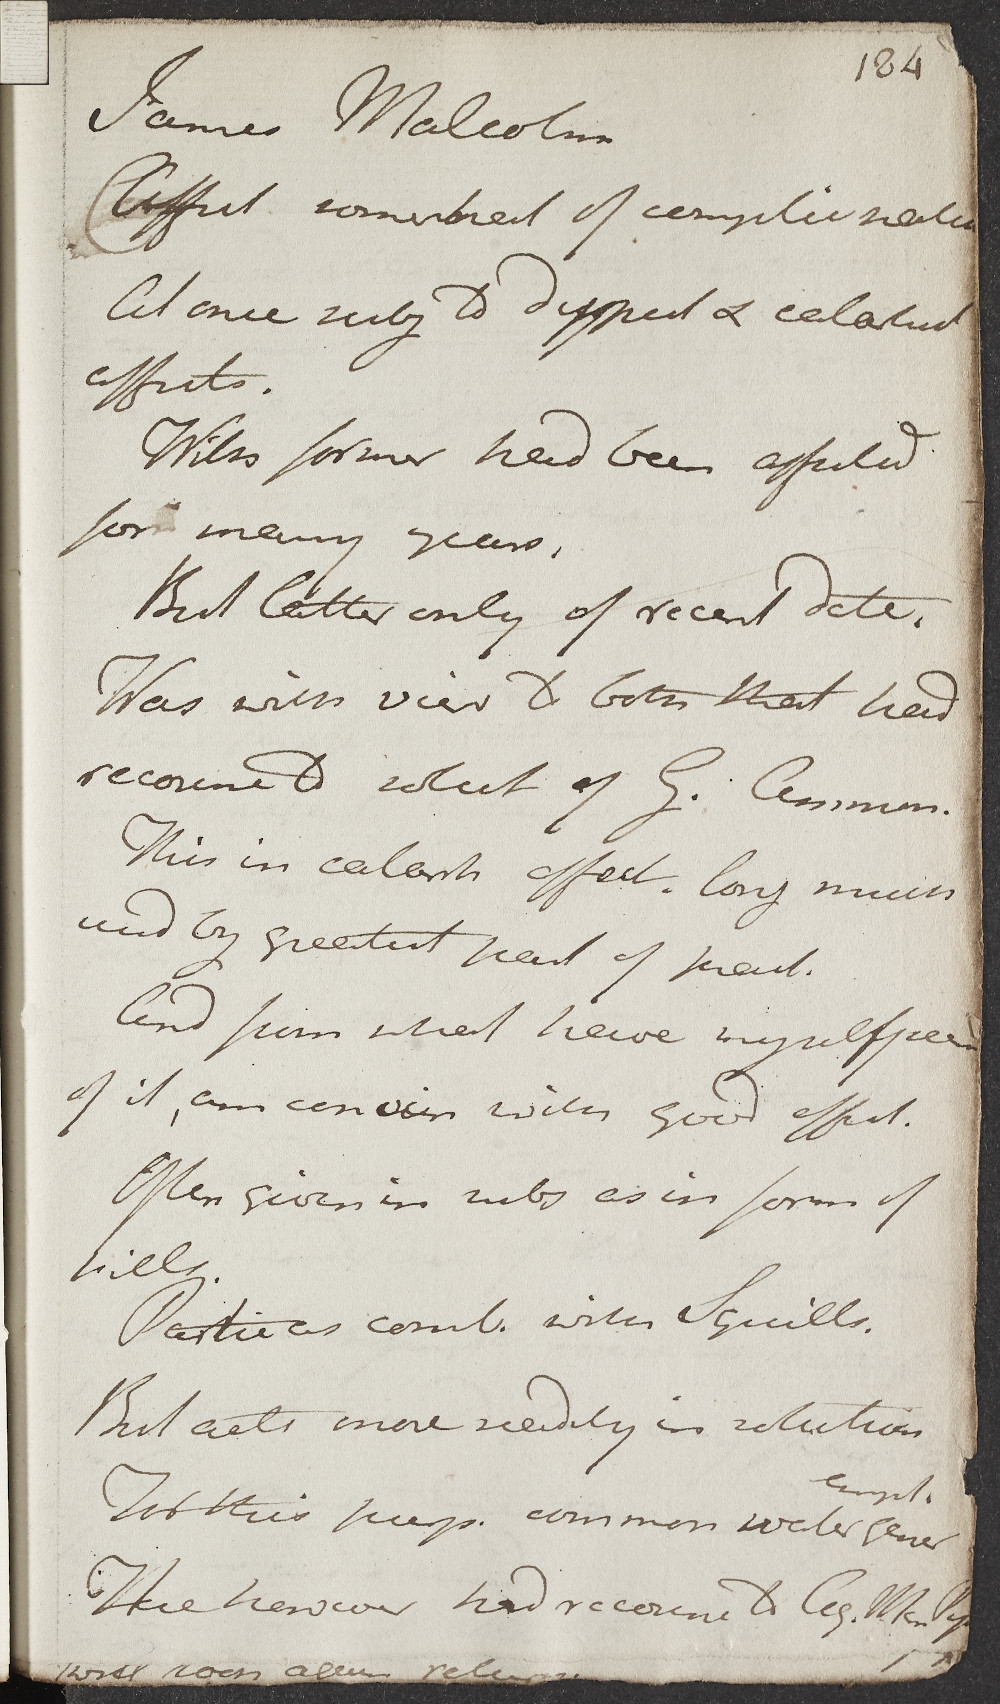 184
James Malcolm
Affect somewhat of complic natu
At once subj to dyspect & catarhal
affects.
With former had been affected
for many years.
But latter only of recent date.
Was with view to both that had
recourse to solut of G. Ammon.
This in catarh affect. long much
usd by greatest part of pract.
And from what have myself seen
of it, am convin with good effect.
Often given in subs as in form of
pills.
Particas comb. with Squills.
But acts more readily in solution
empl.
For this purp. common water gener
Here however had recourse to Aq. Mn. Pip
soon again